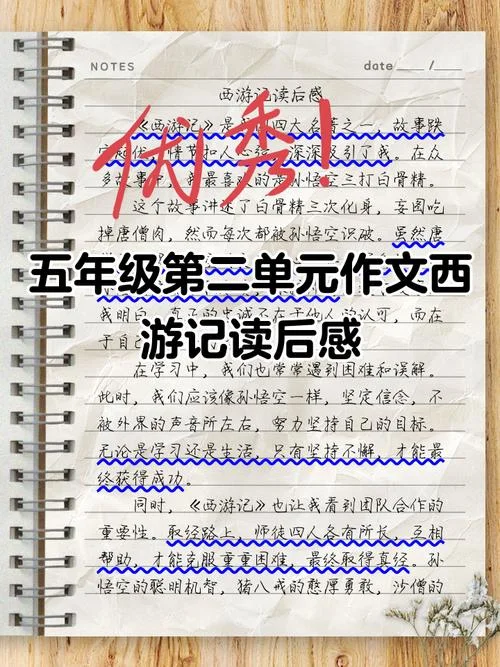 NOTES
date ____ / ____
西游记读后感
《西游记》是四大名著之一,故事跌
优秀!
情节扣人心弦,深深吸引了我。在众
多故事中,我最喜欢的是孙悟空三打白骨精。
这个故事讲述了白骨精三次化身,妄图吃
掉唐僧肉,然而每次都被孙悟空识破。虽然唐
五年级第二单元作文西
游记读后感
我明白,真正的忠诚不在于他人的认可,而在
于自己
在学习中,我们也常常遇到困难和误解。
此时,我们应该像孙悟空一样,坚定信念,不
被外界的声音所左右,努力坚持自己的目标。
无论是学习还是生活,只有坚持不懈,才能最
终获得成功。
同时,《西游记》也让我看到团队合作的
重要性。取经路上,师徒四人各有所长,互相
帮助,才能克服重重困难,最终取得真经。孙
悟空的聪明机智,猪八戒的憨厚勇敢,沙僧的